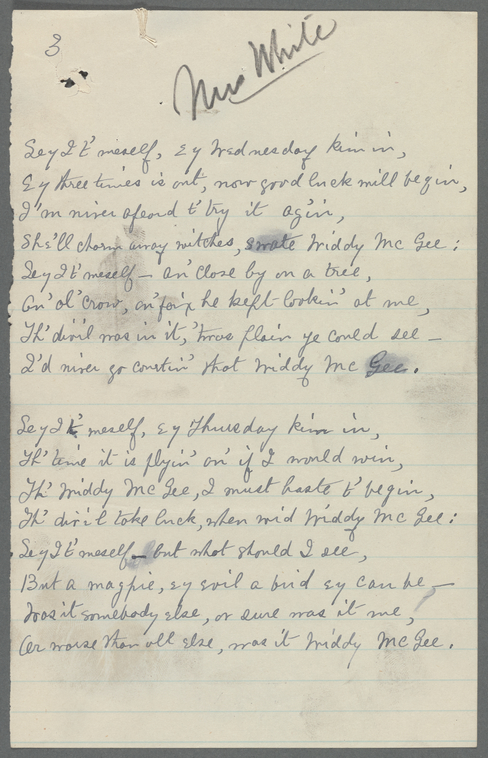 3
Mrs White
Sey I t' meself, ey Wednesday kim in,
Ey three times is out, now good luck will begin,
I'm niver afeard t' try it ag'in,
She'll charm away witches, swate Widdy Mc Gee:
Sey I t' meself — an' close by on a tree,
An' ol' crow, an' he kept lookin' at me,
Th' divil was in it, 'twas plain ye could see —
I'd niver go coortin' that Widdy Mc Gee.
Sey I t' meself, ey Thursday kim in,
Th' time it is flyin' an' if I would win,
Th' Widdy Mc Gee, I must haste t' begin,
Th' div'il take luck, when wid Widdy Mc Gee:
Sey I t' meself — but what should I see,
But a magpie, ey evil a bird ey can be —
Was it somebody else, or sure was it me,
Or worse than all else, was it Widdy Mc Gee.